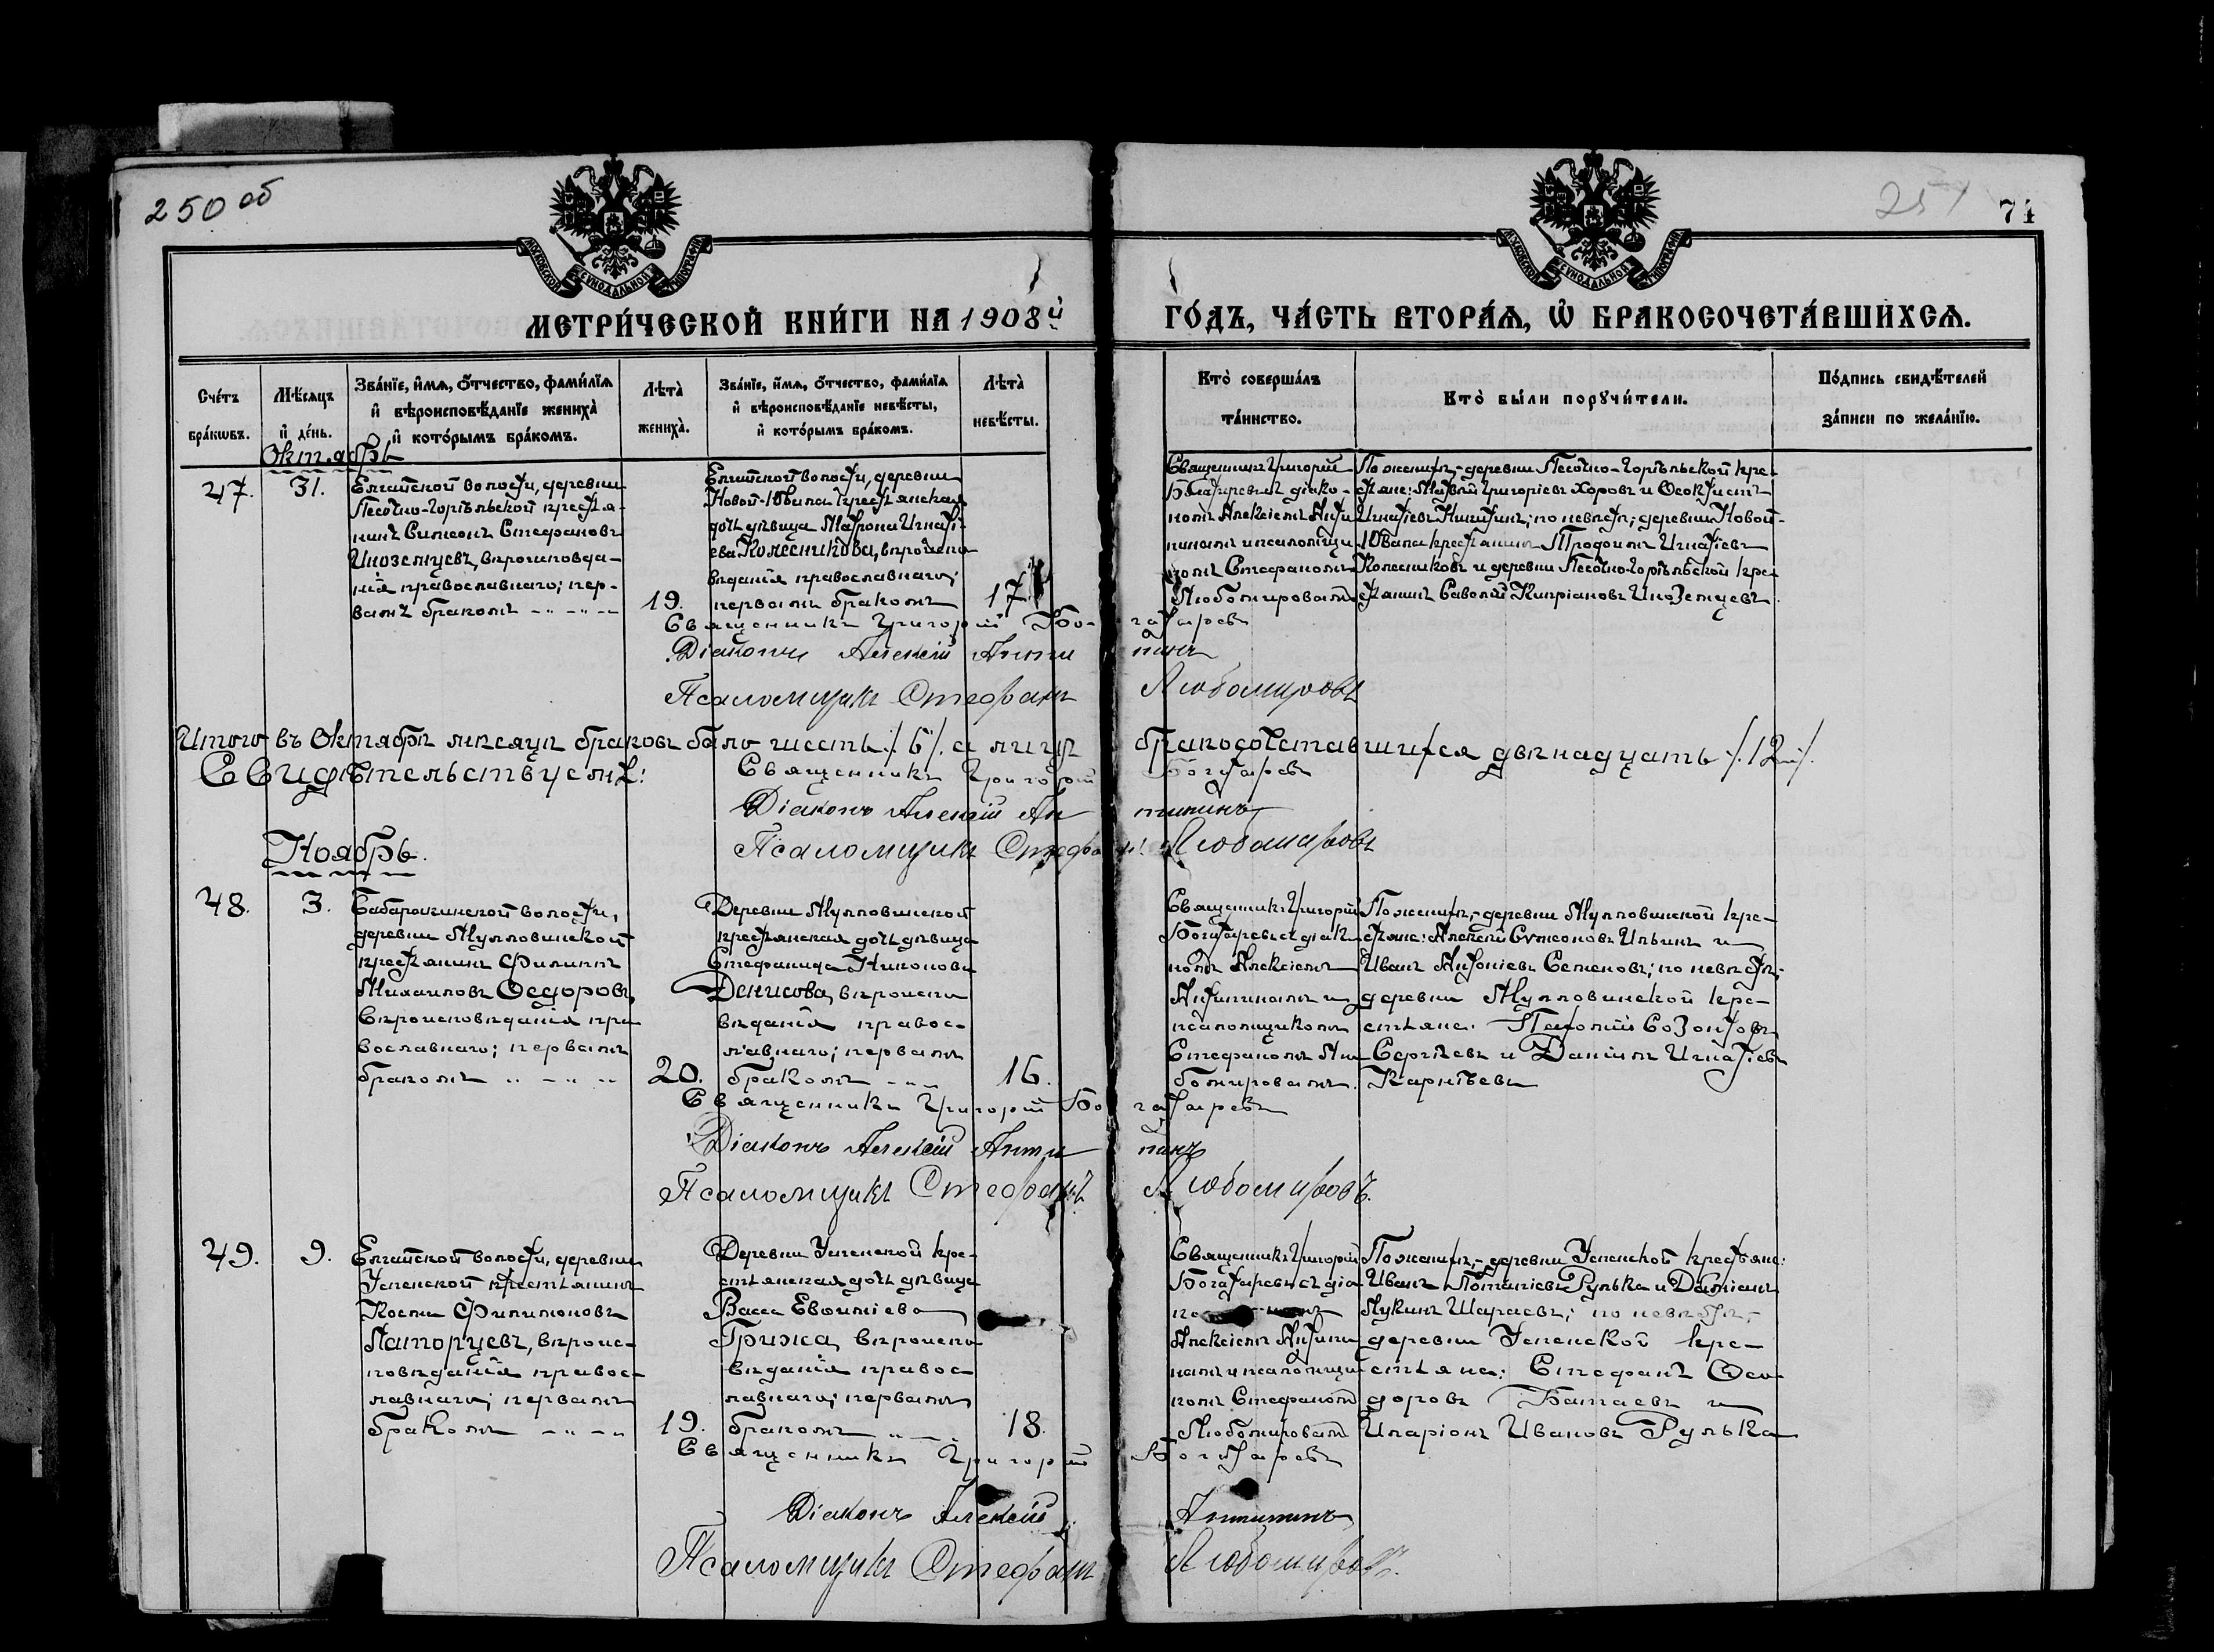 250 об
251
74
МОСКОВСКОЙ СУНОДАЛЬНОЙ ТИПОГРАФІИ
МОСКОВСКОЙ СУНОДАЛЬНОЙ ТИПОГРАФІИ
МЕТРИ́ЧЕСКОЙ КНИ́ГИ НА 1908й
ГО́ДЪ, ЧА́СТЬ ВТОРА́Я, Ѡ БРАКОСОЧЕТА́ВШИХСЯ.
Сче́тъ
бра́кѡвъ.
Мѣ́сяцъ
и҆ де́нь.
Зва́нїе, и҆́мя, ѻ҆́тчество, фами́лїя
и҆ вѣроисповѣ́данїе жениха̀
и҆ кото́рымъ бра́комъ.
Лѣта̀
жениха̀.
Зва́нїе, и҆́мя, ѻ҆́тчество, фами́лїя
и҆ вѣроисповѣ́данїе невѣ́сты,
и҆ кото́рымъ бра́комъ.
Лѣта̀
невѣ́сты.
Кто̀ соверша́лъ
та́инство.
Кто̀ бы́ли порꙋчи́тели.
По́дпись свидѣ́телей
за́писи по жела́нїю.
Октябрь
47.
31.
Елгайской волости, деревни
Песочно-Горѣльской крестья-
нинъ Симеонъ Стефановъ
Иноземцевъ, вѣроисповѣда-
нія православнаго; пер-
вымъ бракомъ
19.
Елгайской волости, деревни
Новой-Ювала крестьянская
дочь дѣвица Матрона Игнатi-
ева Колесникова, вѣроиспо-
вѣданія православнаго;
первымъ бракомъ
17
Священникъ Григорій
Богатыревъ съ діако-
номъ Алексіемъ Анти
пинымъ и псаломщи-
комъ Стефаномъ
Любомировымъ
По женихѣ, - деревни Песочно-Горѣльской кре-
стьяне: Матвѣй Григоріевъ Хоровъ и Ѳеоктистъ
Игнатіевъ Никитинъ; по невѣстѣ; деревни Новой-
Ювала крестьянинъ Трофимъ Игнатіевъ
Колесниковъ и деревни Песочно-Горѣльской кре-
стьянинъ Савватій Кипріановъ Иноземцевъ.
Священникъ Григорій Богатыревъ
Діаконъ Алексій Антипинъ
Псаломщикъ Стефанъ Любомировъ
Итого въ Октябрѣ мѣсяцѣ браковъ было шесть /6/. а лицъ бракосочетавшихся двѣнадцать /.12./.
Свидѣтельствуемъ:
Священникъ Григорій Богатыревъ
Діаконъ Алексій Антипинъ
Псаломщикъ Стефанъ Любомировъ
Ноябрь.
48.
3.
Бабарыкинской волости,
деревни Мулловинской
крестьянинъ Филиппъ
Михаиловъ Ѳедоровъ,
вѣроисповѣданія пра
вославнаго; первымъ
бракомъ
20.
Деревни Мулловинской
крестьянская дочь дѣвица
Стефанида Никонова
Денисова, вѣроиспо
вѣданія правос-
лавнаго; первымъ
бракомъ
16.
Священникъ Григорій
Богатыревъ съ діако
номъ Алексіемъ
Антипинымъ и
псаломщикомъ
Стефаномъ Лю
бомировымъ.
По женихѣ, - деревни Мулловинской кре-
стьяне: Алексій Симеоновъ Ильинъ и
Иванъ Антоніевъ Семеновъ; по невѣстѣ;
деревни Мулловинской кре-
стьяне: Патолій Созонтовъ
Сергѣевъ и Даніилъ Игнатіевъ
Карнѣевъ
Священникъ Григорій Богатыревъ
Діаконъ Алексій Антипинъ
Псаломщикъ Стефанъ Любомировъ.
49.
9.
Елгайской волости, деревни
Успенской крестьянинъ
Косма Филимоновъ
Латорцевъ, вѣроис-
повѣданія правос-
лавнаго; первымъ
бракомъ
19.
Деревни Успенской кре-
стьянская дочь дѣвица
Васса Евѳиміева
Грижа, вѣроиспо
вѣданія правос
лавнаго; первымъ
бракомъ
18.
Священникъ Григорій
Богатыревъ съ діа
Алексіемъ Антипи
нымъ и псаломщи-
комъ Стефаномъ
Любомировымъ
По женихѣ, - деревни Успенской крестьяне:
Иванъ Потапіевъ Рулька и Даміанъ
Лукинъ Шараевъ; по невѣстѣ, -
деревни Успенской кре-
стьяне: Стефанъ Ѳео-
доровъ Батаевъ и
Иларіонъ Ивановъ Рулька
Священникъ Григорій Богатыревъ
Діаконъ Алексій Антипинъ
Псаломщикъ Стефанъ Любомировъ.